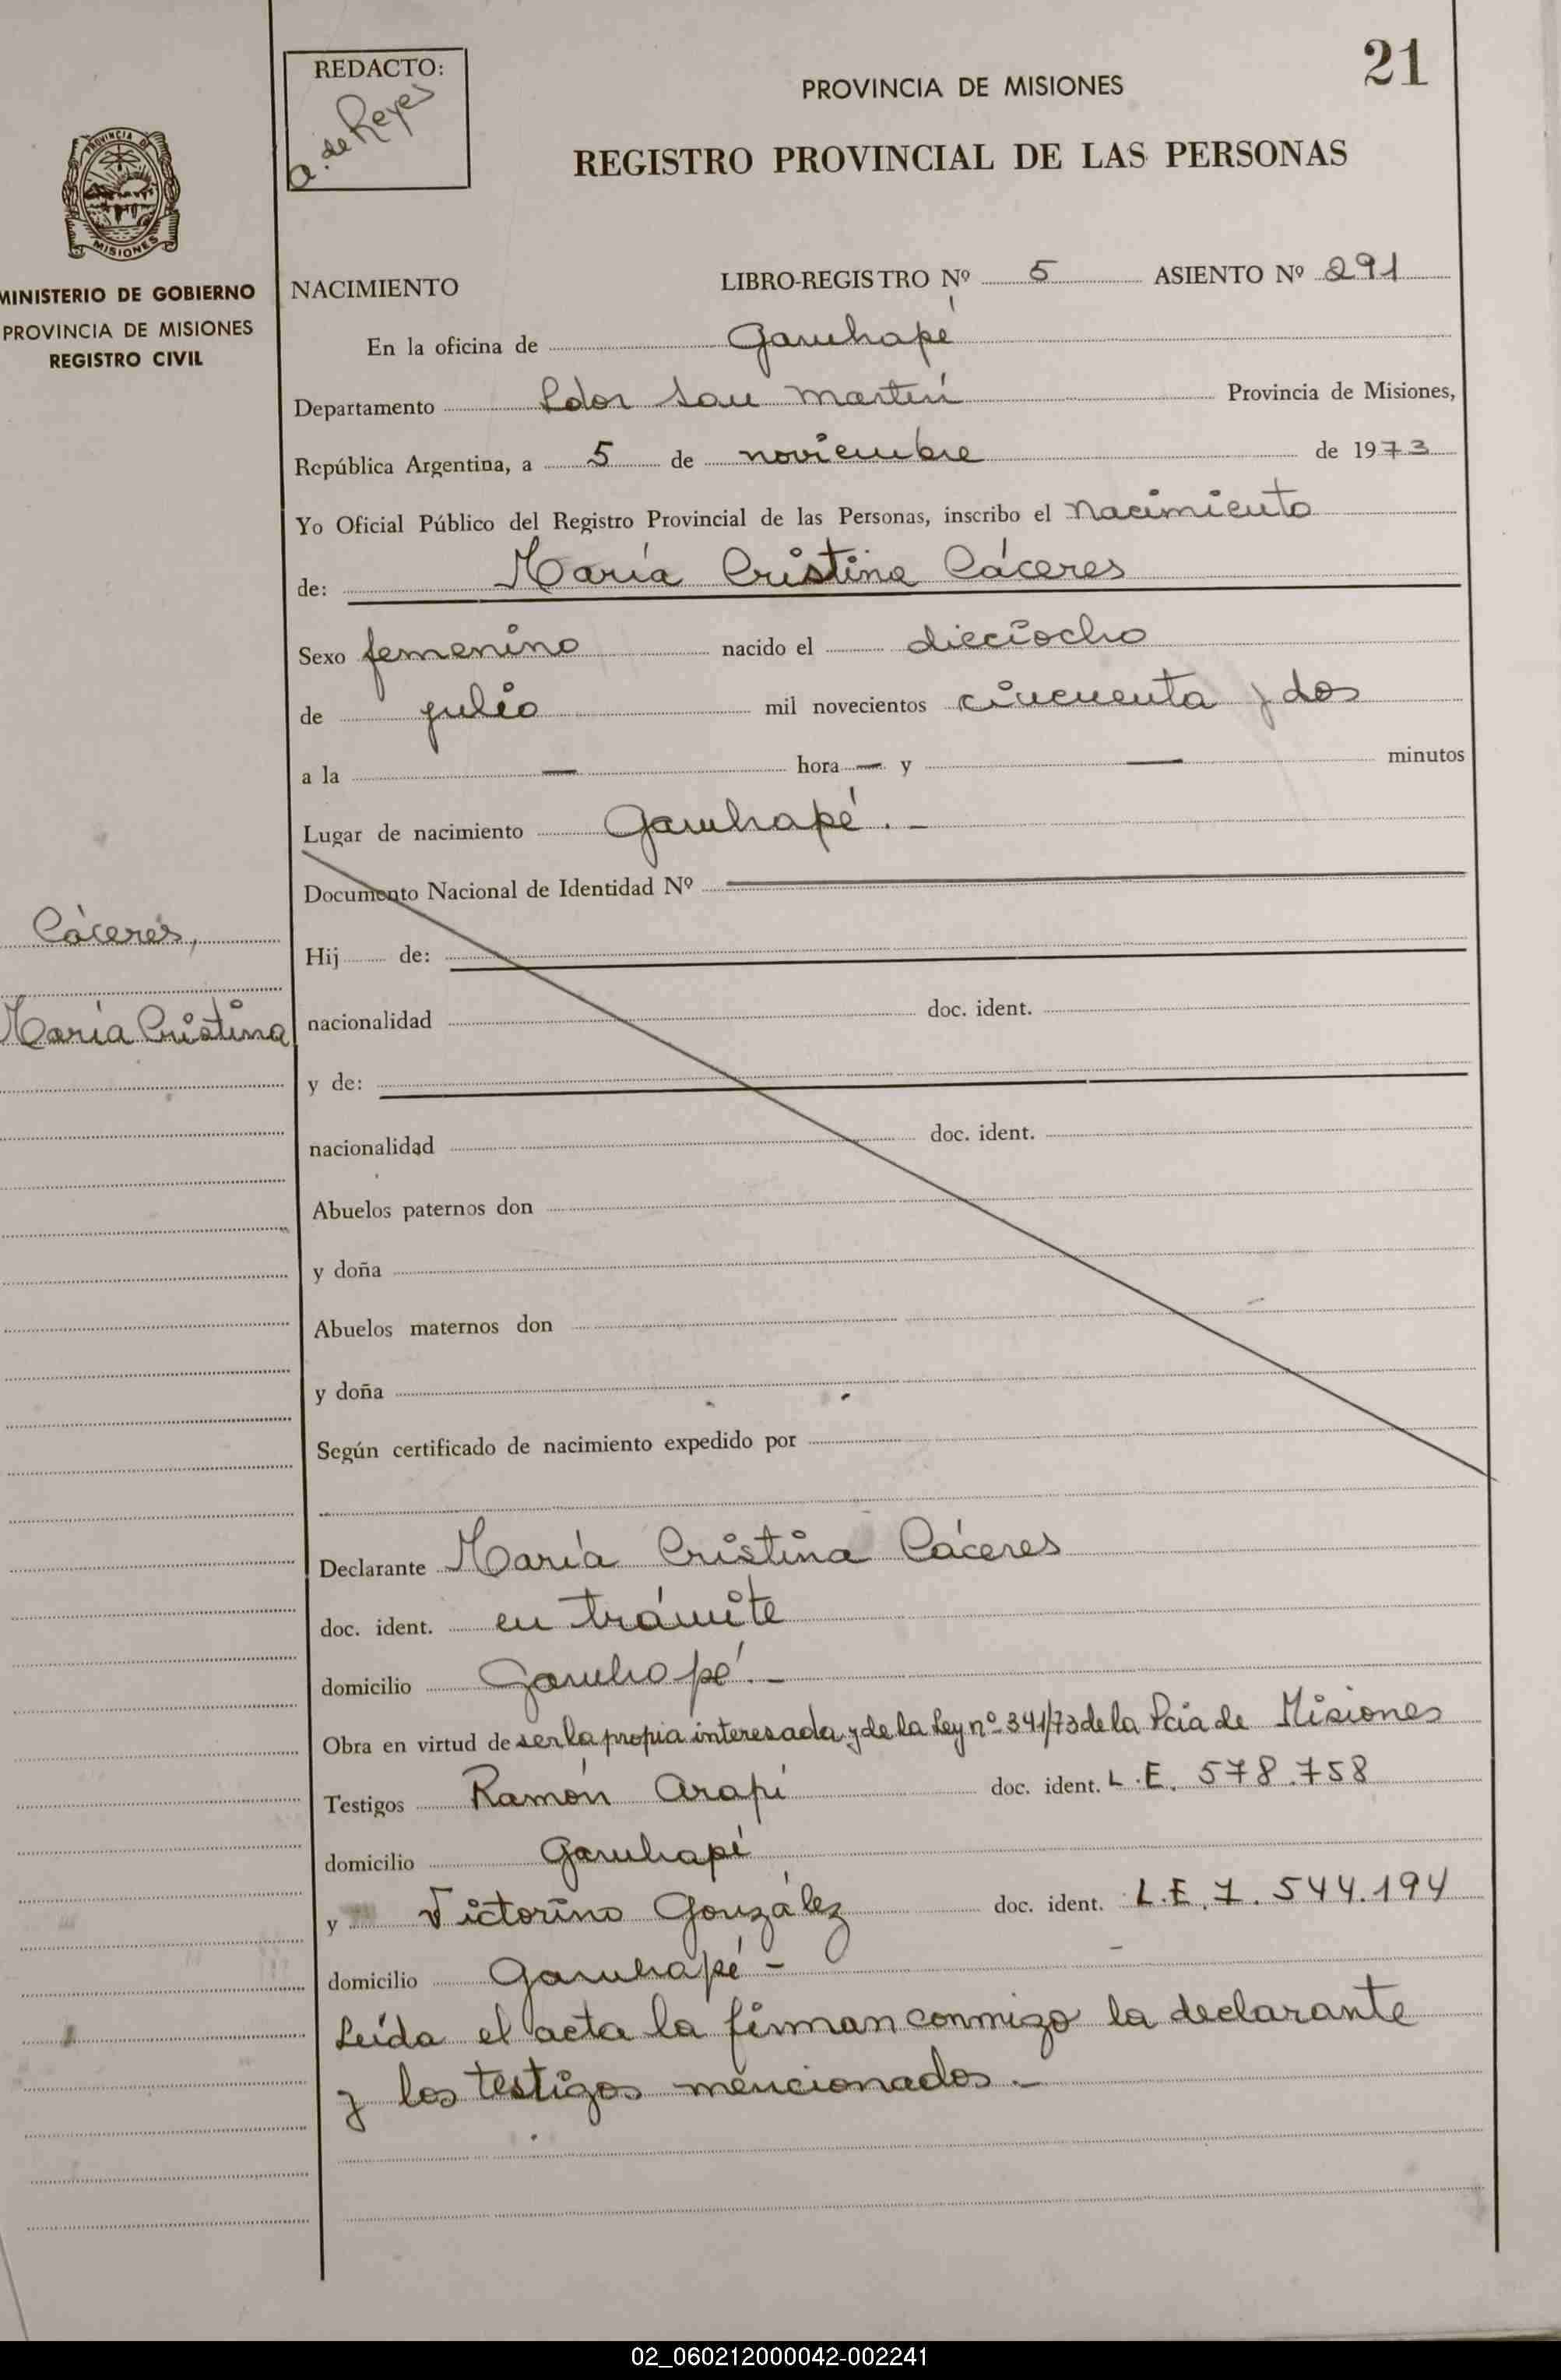 21
REDACTO:
a. de Reyes
PROVINCIA DE MISIONES
REGISTRO PROVINCIAL DE LAS PERSONAS
PROVINCIA DE
MISIONES
MINISTERIO DE GOBIERNO
PROVINCIA DE MISIONES
REGISTRO CIVIL
NACIMIENTO LIBRO-REGISTRO Nº 5 ASIENTO Nº 291
En la oficina de Garuhapé
Departamento Ldor San Martín Provincia de Misiones,
República Argentina, a 5 de noviembre de 1973
Yo Oficial Público del Registro Provincial de las Personas, inscribo el nacimiento
de: María Cristina Cáceres
Sexo femenino nacido el dieciocho
de julio mil novecientos cincuenta y dos
a la — hora — y — minutos
Lugar de nacimiento Garuhapé. –
Documento Nacional de Identidad Nº
Cáceres,
María Cristina
Hij de:
nacionalidad doc. ident.
y de:
nacionalidad doc. ident.
Abuelos paternos don
y doña
Abuelos maternos don
y doña
Según certificado de nacimiento expedido por
Declarante María Cristina Cáceres
doc. ident. en trámite
domicilio Garuhapé. –
Obra en virtud de ser la propia interesada y de la Ley nº 341/73 de la Pcia de Misiones
Testigos Ramón Arapi doc. ident. L.E. 578.758
domicilio Garuhapé
y Victorino González doc. ident. L.E. 7.544.194
domicilio Garuhapé –
Leída el acta la firman conmigo la declarante
y los testigos mencionados –
02_060212000042-002241